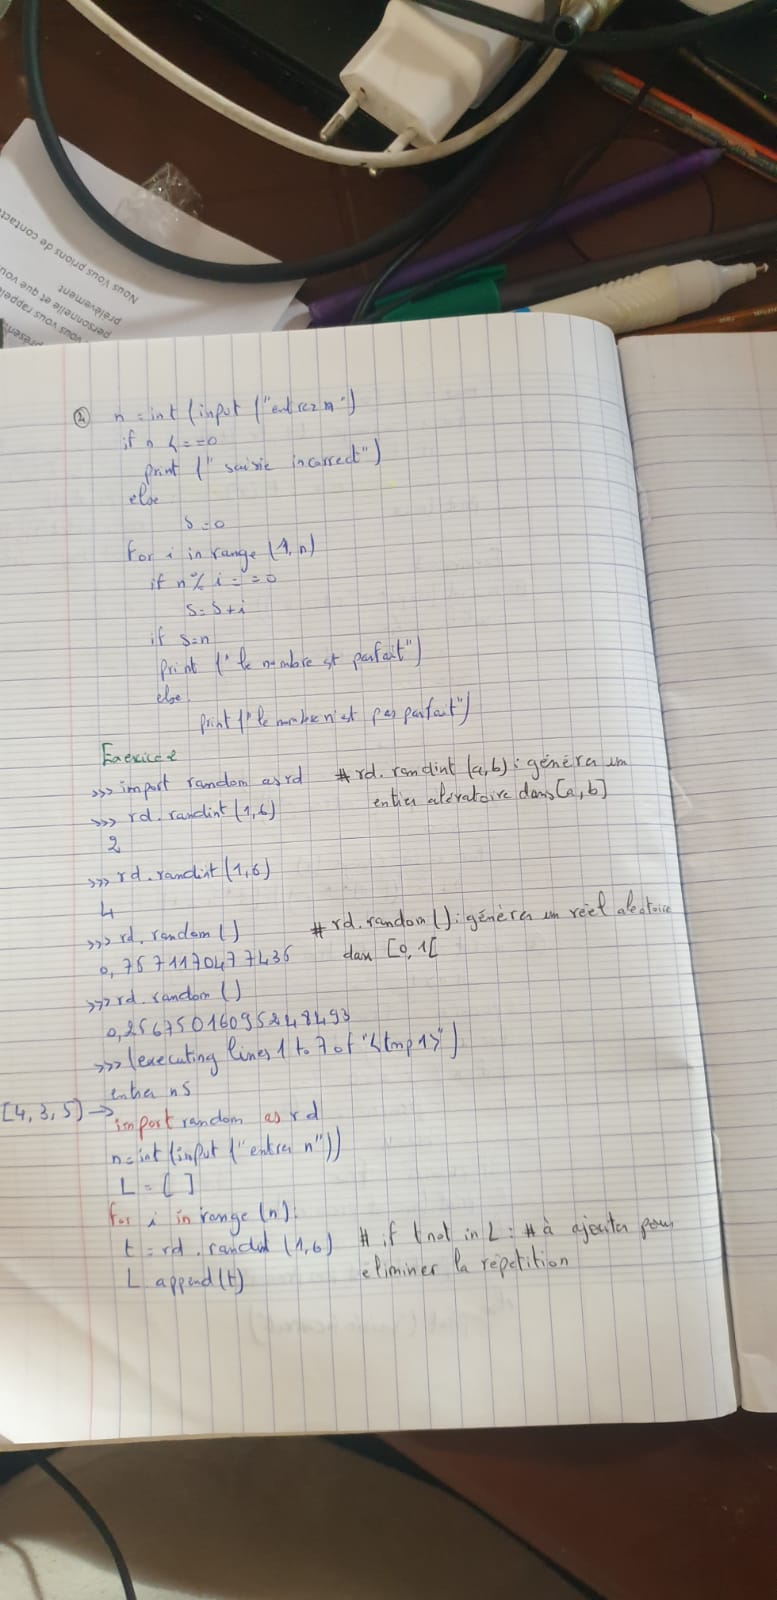 Nous vous prions de contacte
prélèvement
personnelle et que vou
vous vous rappel
présent
② n = int (input ("entrez n")
if n <= =0
print (" saisie incorrect")
else
s=0
for i in range (1,n)
if n% i = =0
s= s+i
if s=n
print (" le nombre st parfait")
else
print (" le nombre n'est pas parfait")
Exercice 2
>>> import random as rd # rd. randint (a,b) : générer un
>>> rd. randint (1,6) entier aléatoire dans [a,b]
2
>>> rd. randint (1,6)
4
>>> rd. random () # rd. random () : générer un réel aleatoire
0,7571170477436 dans [0,1[
>>> rd. random ()
0,25675016095248493
>>> (executing lines 1 to 7 of "<tmp 1>")
entrer n5
[4,3,5] → import random as rd
n=int (input ("entrer n"))
L = [ ]
for i in range (n):
t = rd. randint (1,6) # if t not in L : # à ajouter pour
L append(t) eliminer la répetition